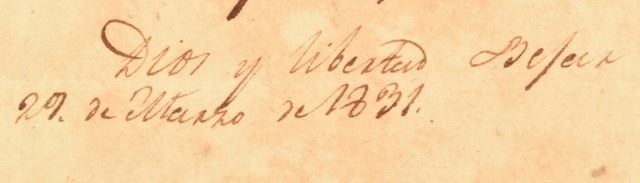 Dios y libertad Bejar
29. de Marzo de 1831.